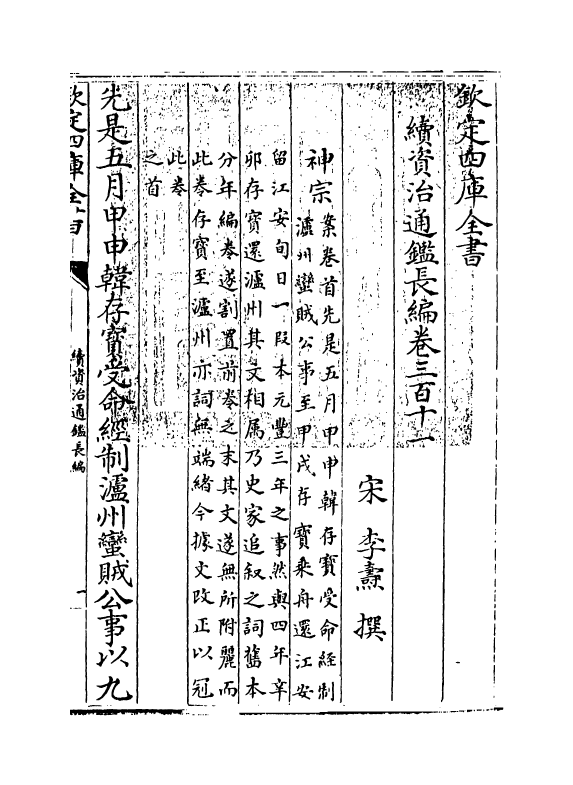 欽定四庫全書
續資治通鑑長編卷三百十一
宋 李燾 撰
神宗
案卷首先是五月甲申韓存寳受命經制
瀘州蠻賊公事至甲戌存寳乘舟還江安
留江安旬日一段本元豐三年之事然與四年辛
卯存寳還瀘州其文相属乃史家追叙之詞舊本
分年編卷遂割置前卷之末其文遂無所附麗而
此卷存寳至瀘州亦詞無端緒今據文改正以冠
此卷
之首
先是五月甲申韓存寳受命經制瀘州蠻賊公事以九
欽定四庫全書
續資治通鑑長編
一